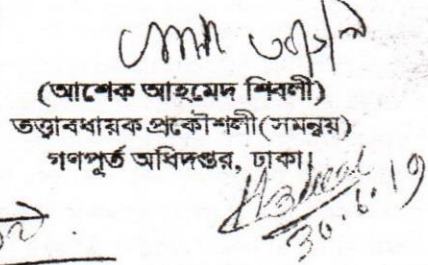 (আশেক আহমেদ শিবলী)
তত্ত্বাবধায়ক প্রকৌশলী(সমন্বয়)
গণপূর্ত অধিদপ্তর, ঢাকা।
30.6.19